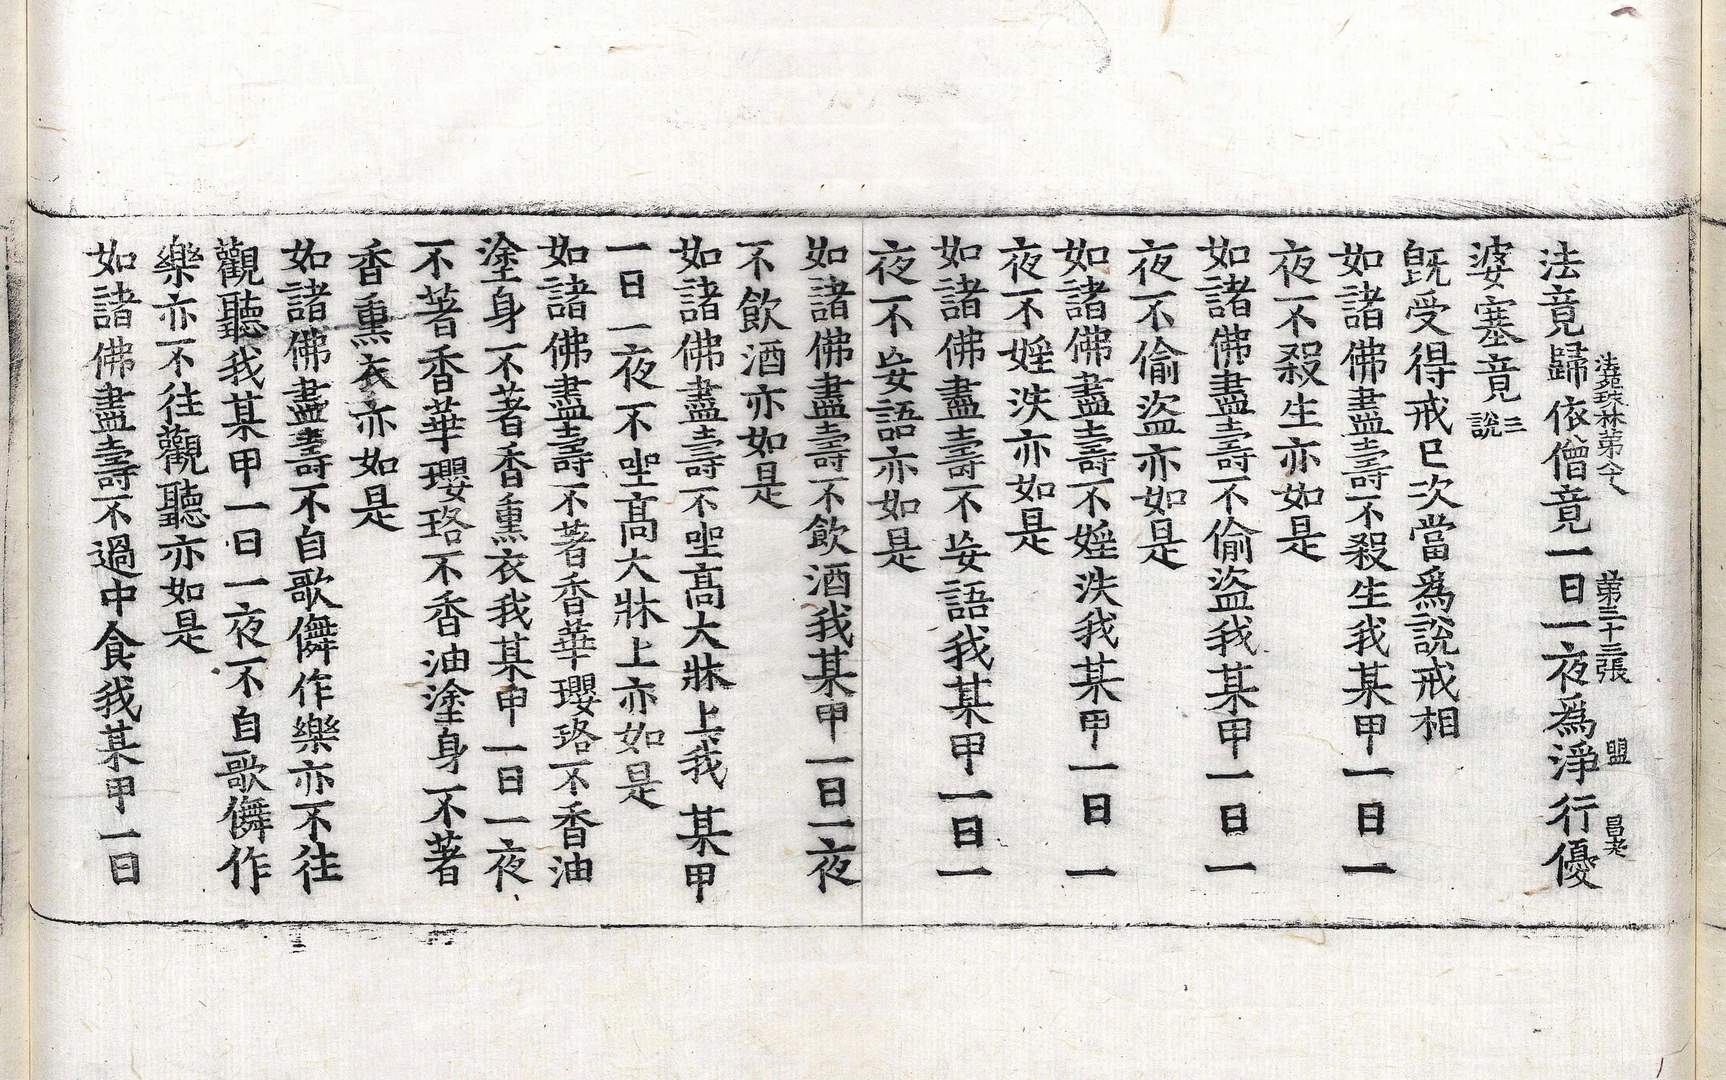 法苑珠林第八十八 第三十三張 盟 昌老
法竟歸依僧竟一日一夜爲淨行優
婆塞竟三說
旣受得戒已次當爲說戒相
如諸佛盡壽不殺生我某甲一日一
夜不殺生亦如是
如諸佛盡壽不偷盜我某甲一日一
夜不偷盜亦如是
如諸佛盡壽不婬泆我某甲一日一
夜不婬泆亦如是
如諸佛盡壽不妄語我某甲一日一
夜不妄語亦如是
如諸佛盡壽不飮酒我某甲一日一夜
不飮酒亦如是
如諸佛盡壽不坐高大牀上我某甲
一日一夜不坐高大牀上亦如是
如諸佛盡壽不著香華瓔珞不香油
塗身不著香熏衣我某甲一日一夜
不著香華瓔珞不香油塗身不著
香熏衣亦如是
如諸佛盡壽不自歌儛作樂亦不往
觀聽我某甲一日一夜不自歌儛作
樂亦不往觀聽亦如是
如諸佛盡壽不過中食我某甲一日